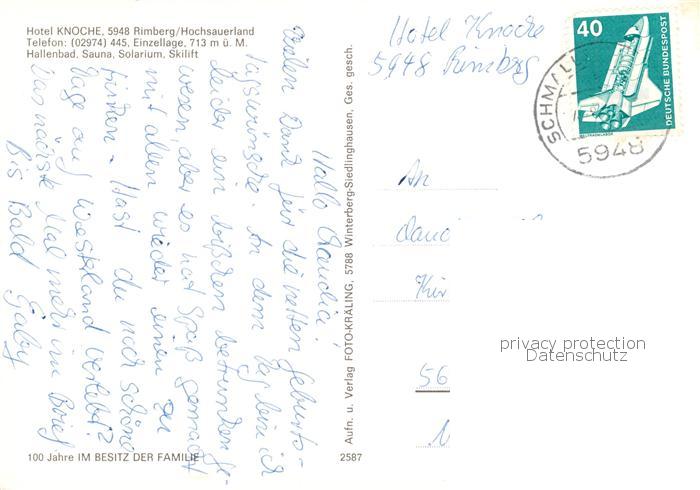 Hotel KNOCHE, 5948 Rimberg/Hochsauerland
Telefon: (02974) 445, Einzellage, 713 m ü. M.
Hallenbad, Sauna, Solarium, Skilift
Hallo Claudia!
Vielen Dank für die netten Geburts-
tagswünsche. An dem Tag bin ich
leider ein bißchen betrunken ge-
wesen, aber es hat Spaß gemacht
mit allen wieder einen zu
trinken. Hast du noch schöne
Tage auf Westerland verlebt?
Das nächste Mal mehr im Brief
Bis Bald Gaby
100 Jahre IM BESITZ DER FAMILIE
2587
Aufn. u. Verlag FOTO-KRÄLING, 5788 Winterberg-Siedlinghausen, Ges. gesch.
Hotel Knoche
5948 Rimberg
40
DEUTSCHE BUNDESPOST
SCHMALL
5948
An
56
privacy protection
Datenschutz